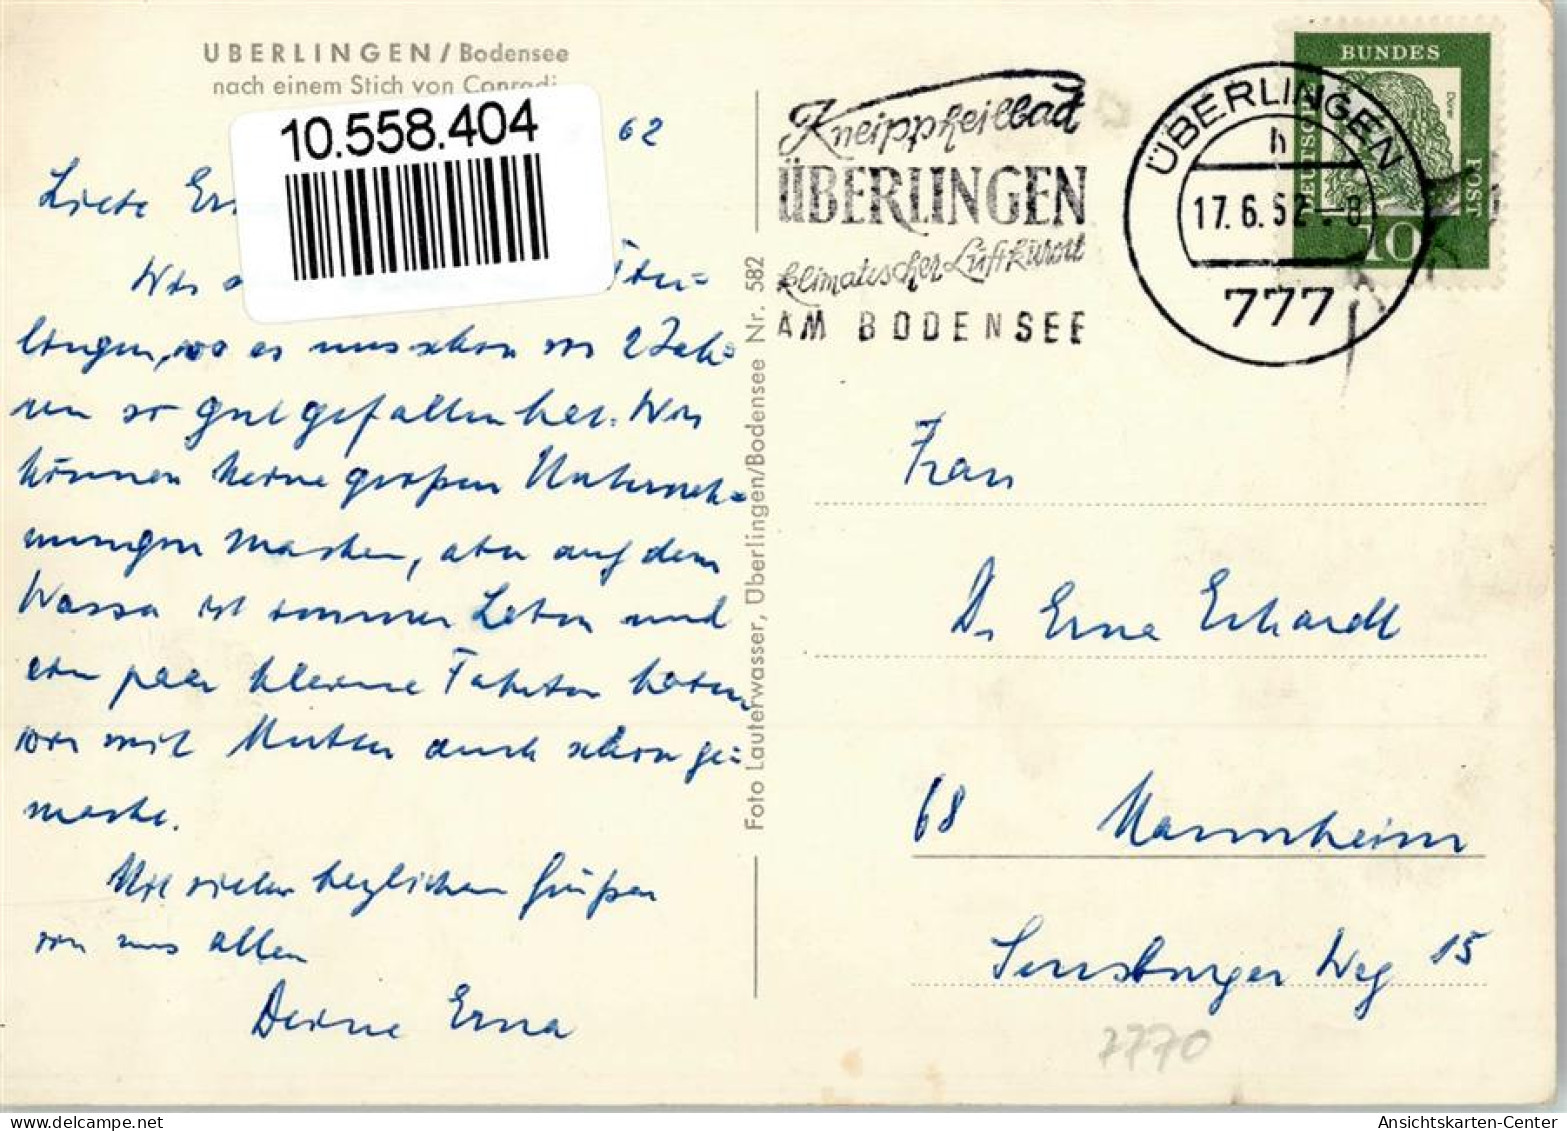 ÜBERLINGEN/Bodensee
nach einem Stich von Conradi
10.558.404
62
Liebe
Wir
lingen, wo es uns schon vor 2 Jah=
ren so gut gefallen hat. Wir
können keine großen Unterneh=
mungen machen, aber auf dem
Wasser ist immer Leben und
ein paar kleine Fahrten haben
wir mit Mutter auch schon ge=
macht.
Mit vielen herzlichen Grüßen
von uns allen
Deine Erna
Foto Lauterwasser, Überlingen/Bodensee Nr. 582
Kneippheilbad
ÜBERLINGEN
klimatischer Luftkurort
AM BODENSEE
ÜBERLINGEN
h
17.6.62.-8
777
DEUTSCHE
BUNDES
POST
Dürer
10
Frau
Dr Erna Erhardt
68 Mannheim
Sensburger Weg 15
7770
Ansichtskarten-Center